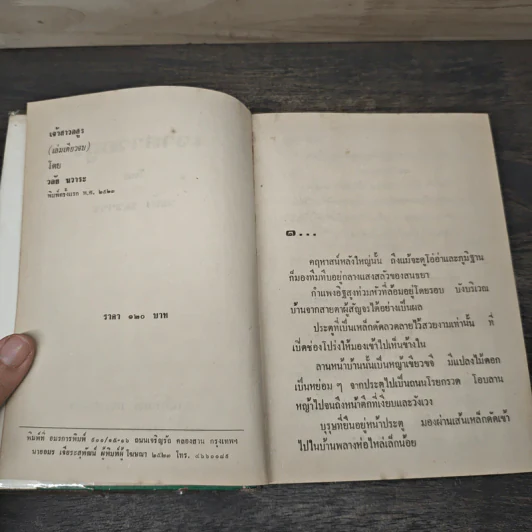 เจ้าสาวอสูร
(เล่มเดียวจบ)
โดย
วลัย นวาระ
พิมพ์ครั้งแรก พ.ศ. ๒๕๒๓
ราคา ๑๒๐ บาท
พิมพ์ที่ อมรการพิมพ์ ถนนเจริญรัถ คลองสาน กรุงเทพฯ
ผู้พิมพ์ผู้โฆษณา ๒๕๒๓ โทร.
๑...
คฤหาสน์หลังใหญ่นั้น ถึงแม้จะดูโอ่อ่าและภูมิฐาน
ก็มองทึมทึบอยู่กลางแสงสลัวของสนธยา
กำแพงอิฐสูงท่วมหัวที่ล้อมอยู่โดยรอบ บังบริเวณ
บ้านจากสายตาผู้สัญจรได้อย่างเป็นผล
ประตูที่เป็นเหล็กดัดลวดลายไว้สวยงามเท่านั้น ที่
เปิดช่องโปร่งให้มองเข้าไปเห็นข้างใน
ลานหน้าบ้านนั้นเป็นหญ้าเขียวขจี มีแปลงไม้ดอก
เป็นหย่อมๆ จากประตูไปเป็นถนนโรยกรวด โอบลาน
หญ้าไปจนถึงหน้าตึกที่เงียบและวังเวง
บุรุษที่ยืนอยู่หน้าประตู มองผ่านเส้นเหล็กดัดเข้า
ไปในบ้านพลางห่อไหล่เล็กน้อย